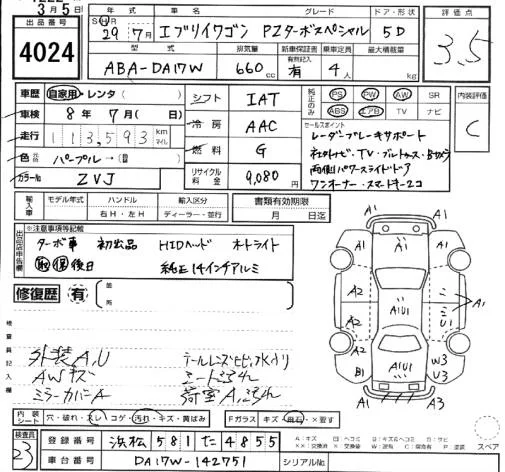 3月5日
出品番号
4024
年式 車名 グレード ドア・形状
SHR
29年7月 エブリイワゴン PZターボスペシャル 5D
型式 排気量 新車保証書 乗車定員 最大積載量
有無記入
ABA-DA17W 660cc 有 4人 kg
評価点
3.5
車歴 自家用・レンタ( )
車検 8年7月(日)
走行 113,593 km マイル
色 パープル→(替)
カラーNo ZVJ
シフト IAT
冷房 AAC
燃料 G
リサイクル料金 9,080円
純正のみ PS PW AW SR
ABS エアB TV ナビ
セールスポイント
レーダーブレーキサポート
社外ナビ・TV・ブルートゥース・Bカメラ
両側パワースライドドア
ワンオーナー・スマートキー2コ
内装評価
C
輸入車 モデル年式 ハンドル 輸入区分
右H・左H ディーラー・並行
書類有効期限
月 日迄
出品店申告欄
※注意事項等記載
ターボ車 初出品 HIDヘッド オートライト
取保後日 純正14インチアルミ
修復歴 有 箇所
検査員記入欄
外装A,U
AWキズ
ミラーカバーA
テールレンズヒビ、水入り
シートヨゴレ
荷室A,ヨゴレ
A1
A1 A1 A1
A2 A1U1 ミ
ミ A1
U1
A2
A1U1 W3
B1 U3
A1 A3
内装シート 穴・破れ・スレ・コゲ・汚れ・キズ・黄ばみ
Fガラス キズ・飛石・×要す
スペア
検査員 23
登録番号 浜松 581 た 4855
車台番号 DA17W-142751
シリアルNo.